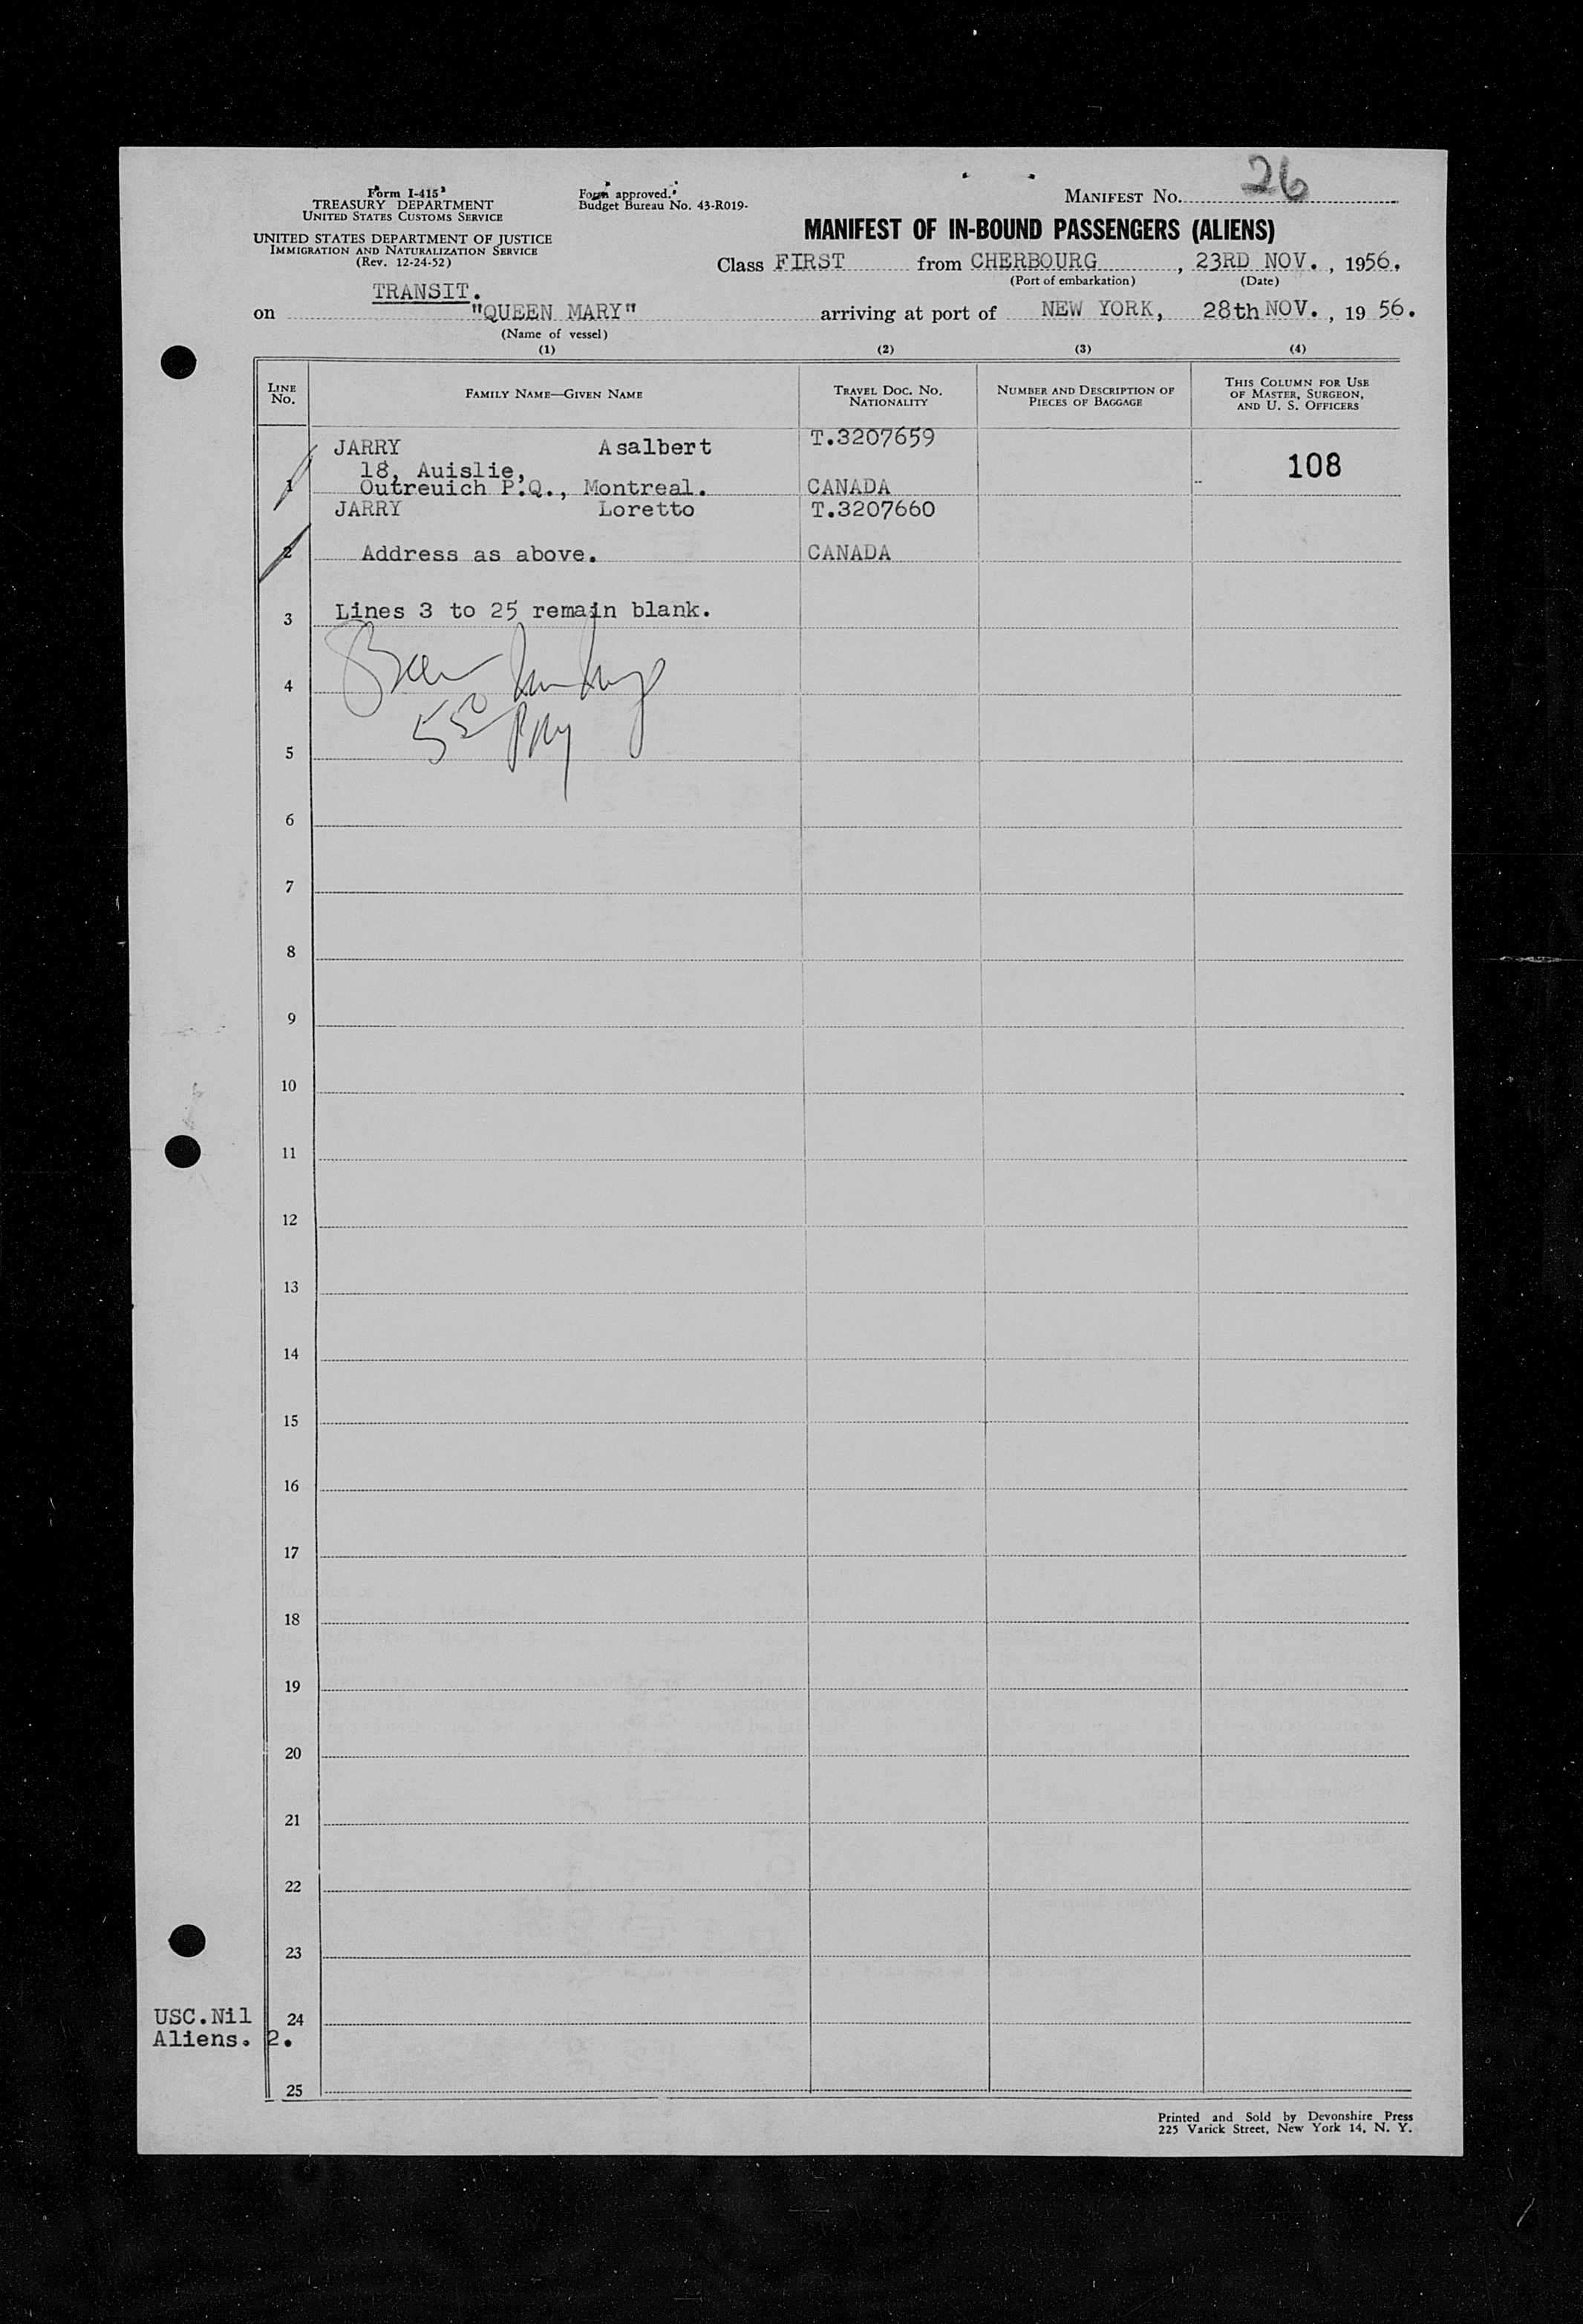 Form I-415
TREASURY DEPARTMENT
UNITED STATES CUSTOMS SERVICE
UNITED STATES DEPARTMENT OF JUSTICE
IMMIGRATION AND NATURALIZATION SERVICE
(Rev. 12-24-52)
Form approved.
Budget Bureau No. 43-R019-
MANIFEST NO. 26
MANIFEST OF IN-BOUND PASSENGERS (ALIENS)
Class FIRST from CHERBOURG, 23RD NOV., 1956.
(Port of embarkation) (Date)
TRANSIT.
on "QUEEN MARY" arriving at port of NEW YORK, 28th NOV., 19 56.
(Name of vessel)
(1) (2) (3) (4)
LINE NO. FAMILY NAME—GIVEN NAME TRAVEL DOC. NO. NATIONALITY NUMBER AND DESCRIPTION OF PIECES OF BAGGAGE THIS COLUMN FOR USE OF MASTER, SURGEON, AND U. S. OFFICERS
JARRY Asalbert T.3207659
18, Auislie, 108
1 Outreuich P.Q., Montreal. CANADA
JARRY Loretto T.3207660
2 Address as above. CANADA
3 Lines 3 to 25 remain blank.
4
5
6
7
8
9
10
11
12
13
14
15
16
17
18
19
20
21
22
23
USC.Nil 24
Aliens. 2.
25
Printed and Sold by Devonshire Press
225 Varick Street, New York 14, N. Y.